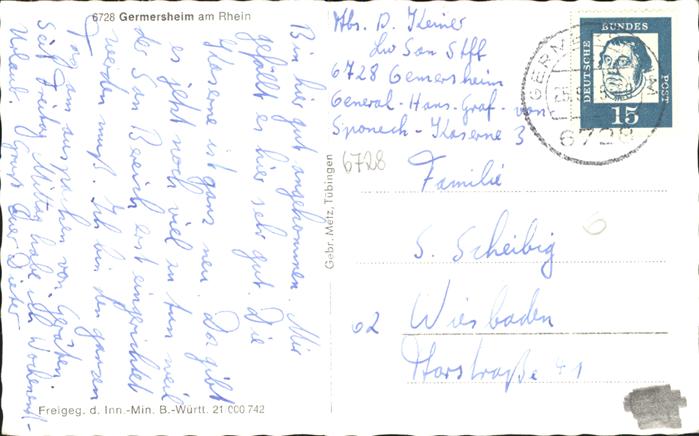 6728 Germersheim am Rhein
Bin hier gut angekommen. Mir
gefällt es hier sehr gut. Die
Kaserne ist ganz neu. Da gibt
es jetzt noch viel zu tun weil
der San Bereich erst eingerichtet
werden muß. Ich bin den ganzen
Tag am auspacken von Geräten
Seit Freitag Mittag habe ich Wochenend-
Urlaub. Gruß Euer Dieter
Freigeg. d. Inn.-Min. B.-Württ. 21 000 742
Gebr. Metz, Tübingen
Abs. D. Keiner
Lw San Stff
6728 Germersheim
General-Hans-Graf-von
Sponeck-Kaserne 3
DEUTSCHE BUNDES POST
15
GERM
6728
6728
Familie
S. Scheibig
62 Wiesbaden
Horstraße 41